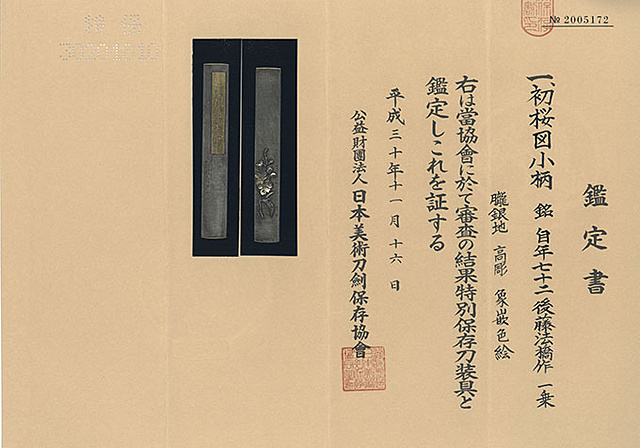 № 2005172
鑑定書
一、初桜図小柄 銘 自年七十二後藤法橋作 一乗
朧銀地 高彫 象嵌色絵
右は當協會に於て審査の結果特別保存刀装具と
鑑定しこれを証する
平成三十年十一月十六日
公益財團法人 日本美術刀劍保存協會